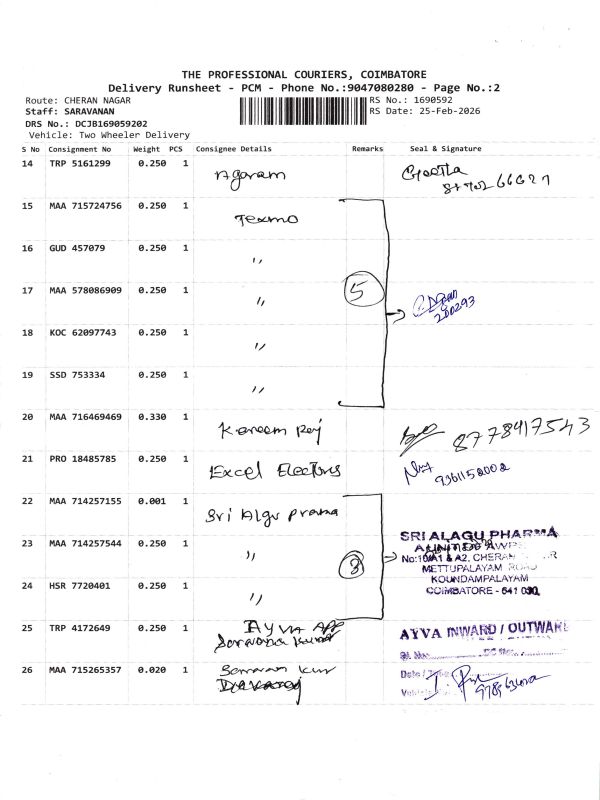 THE PROFESSIONAL COURIERS, COIMBATORE
Delivery Runsheet - PCM - Phone No.:9047080280 - Page No.:2
Route: CHERAN NAGAR
RS No.: 1690592
Staff: SARAVANAN
RS Date: 25-Feb-2026
DRS No.: DCJB169059202
Vehicle: Two Wheeler Delivery
S No Consignment No Weight PCS Consignee Details Remarks Seal & Signature
14 TRP 5161299 0.250 1 Agaram Geetha
15 MAA 715724756 0.250 1 Texmo
16 GUD 457079 0.250 1 "
17 MAA 578086909 0.250 1 " 5 200293
18 KOC 62097743 0.250 1 "
19 SSD 753334 0.250 1 "
20 MAA 716469469 0.330 1 8778917543
21 PRO 18485785 0.250 1 Excel 9361152002
22 MAA 714257155 0.001 1 Sri Algu
23 MAA 714257544 0.250 1 " 3
SRI ALAGU PHARMA
No:10/A1 & A2, CHERAN
METTUPALAYAM ROAD
24 HSR 7720401 0.250 1 "
KOUNDAMPALAYAM
COIMBATORE - 641 030.
25 TRP 4172649 0.250 1 AYVA
AYVA INWARD / OUTWARD
26 MAA 715265357 0.020 1